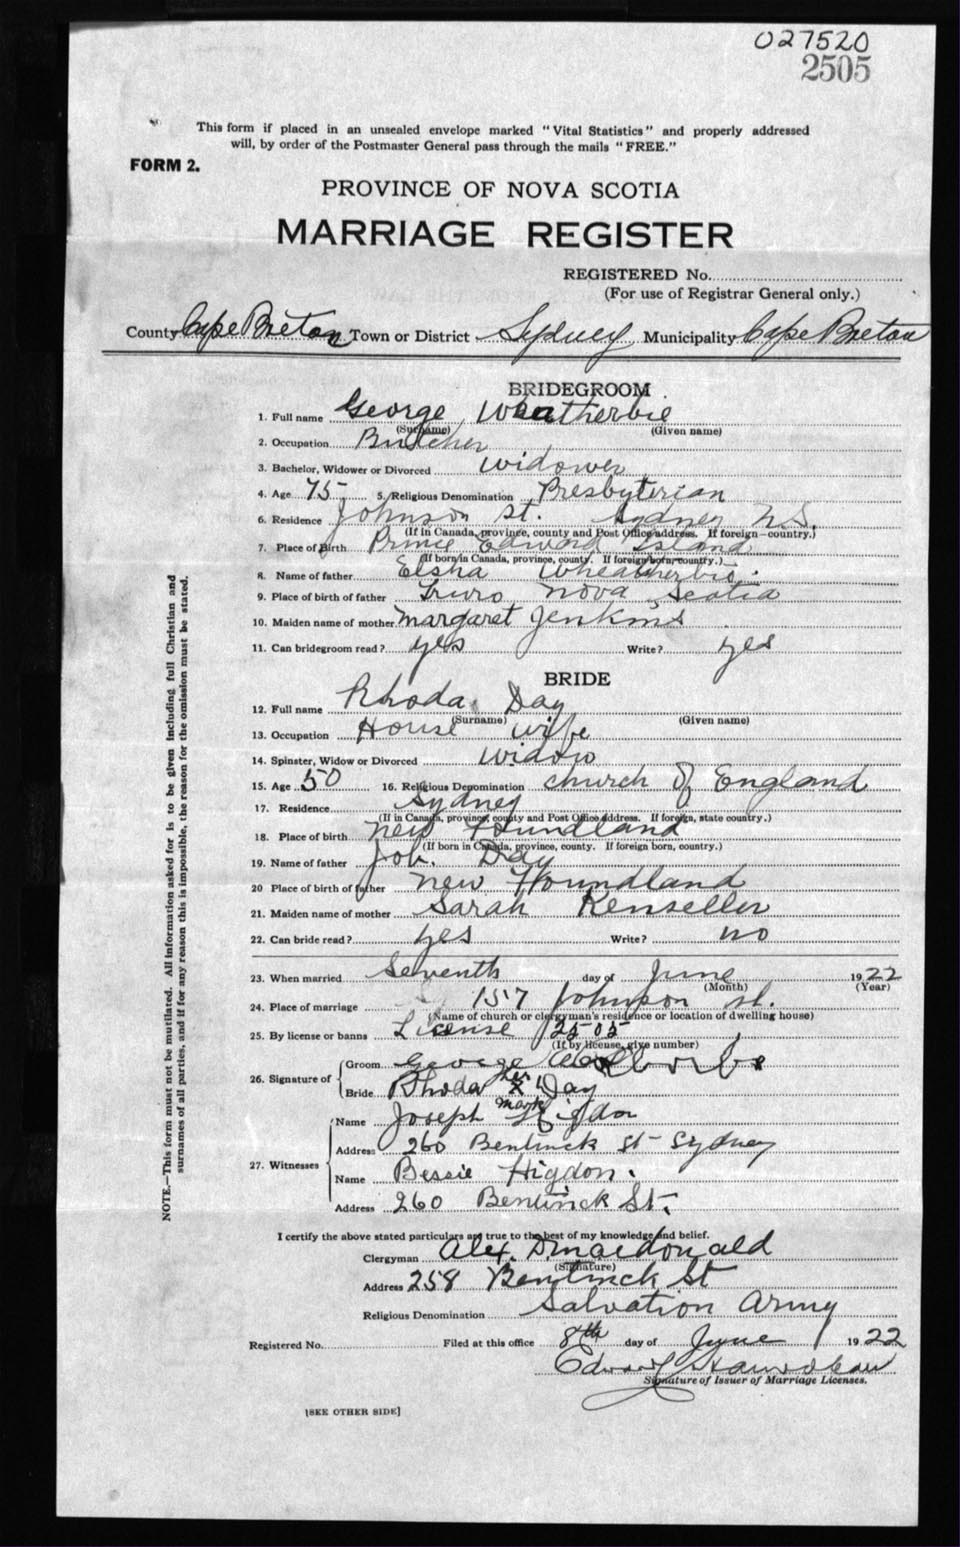 027520
2505
This form if placed in an unsealed envelope marked "Vital Statistics" and properly addressed
will, by order of the Postmaster General pass through the mails "FREE."
FORM 2.
PROVINCE OF NOVA SCOTIA
MARRIAGE REGISTER
REGISTERED No.
(For use of Registrar General only.)
County Cape Breton Town or District Sydney Municipality Cape Breton
BRIDEGROOM
1. Full name George Wheatherbie
(Surname) (Given name)
2. Occupation Butcher
3. Bachelor, Widower or Divorced widower
4. Age 75 5. Religious Denomination Presbyterian
6. Residence Johnson St. Sydney N.S.
(If in Canada, province, county and Post Office address. If foreign—country.)
7. Place of Birth Prince Edward Island
(If born in Canada, province, county. If foreign born, country.)
8. Name of father Elsha Wheatherbie
9. Place of birth of father Truro Nova Scotia
10. Maiden name of mother Margaret Jenkins
11. Can bridegroom read? yes Write? yes
BRIDE
12. Full name Rhoda Day
(Surname) (Given name)
13. Occupation House wife
14. Spinster, Widow or Divorced widow
15. Age 50 16. Religious Denomination church of England
17. Residence Sydney
(If in Canada, province, county and Post Office Address. If foreign, state country.)
18. Place of birth new Foundland
(If born in Canada, province, county. If foreign born, country.)
19. Name of father Job. Day
20 Place of birth of father new Foundland
21. Maiden name of mother Sarah
22. Can bride read? yes Write? no
23. When married Seventh day of June 1922
(Month) (Year)
24. Place of marriage 157 Johnson St.
(Name of church or clergyman's residence or location of dwelling house)
25. By license or banns License 2505
(If by license, give number)
26. Signature of
Groom George
Bride Rhoda her X mark Day
27. Witnesses
Name Joseph Higdon
Address 260 Bentinck St Sydney
Name Bessie Higdon.
Address 260 Bentinck St.
I certify the above stated particulars are true to the best of my knowledge and belief.
Clergyman Alex.
(Signature)
Address 258 Bentinck St
Religious Denomination Salvation Army
Registered No. Filed at this office 8th day of June 1922
Edward
Signature of Issuer of Marriage Licenses.
[SEE OTHER SIDE]
NOTE.—This form must not be mutilated. All information asked for is to be given including full Christian and
surnames of all parties, and if for any reason this is impossible, the reason for the omission must be stated.